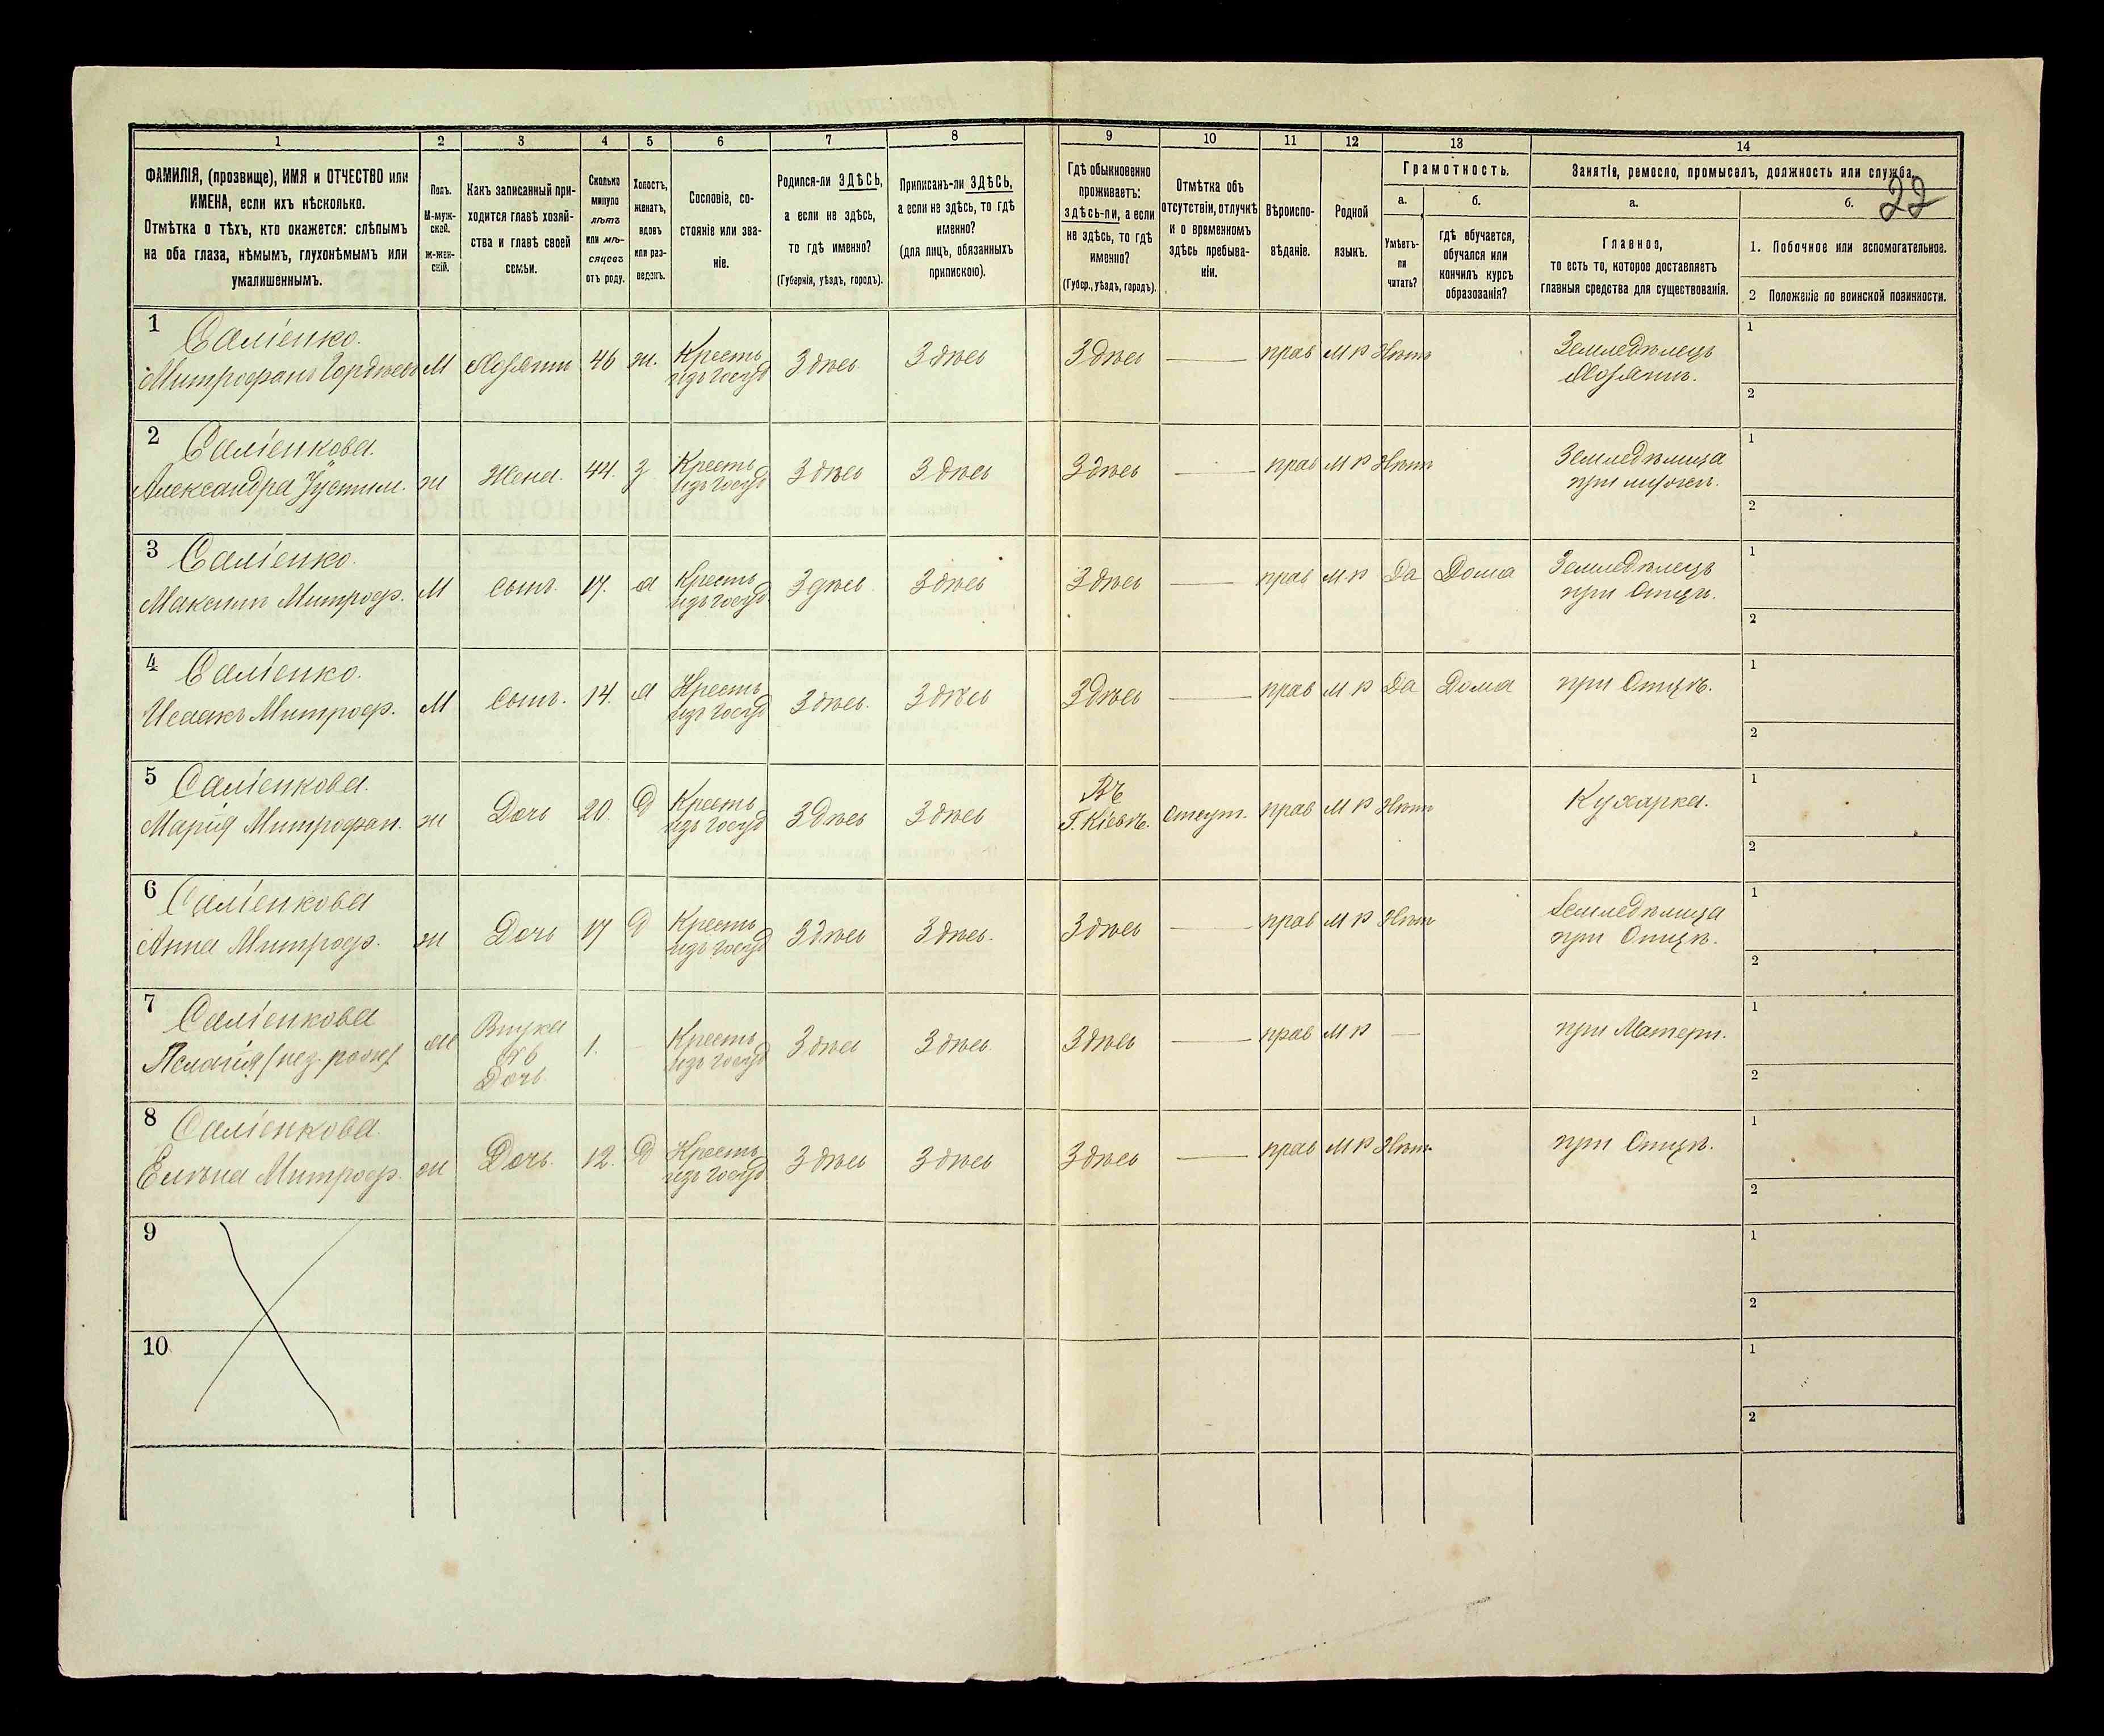 1 2 3 4 5 6 7 8 9 10 11 12 13 14
ФАМИЛІЯ, (прозвище), ИМЯ и ОТЧЕСТВО или ИМЕНА, если ихъ нѣсколько.
Отмѣтка о тѣхъ, кто окажется: слѣпымъ на оба глаза, нѣмымъ, глухонѣмымъ или умалишеннымъ.
Полъ. М-мужской. Ж-женскій.
Какъ записанный приходится главѣ хозяйства и главѣ своей семьи.
Сколько минуло лѣтъ или мѣсяцевъ отъ роду.
Холостъ, женатъ, вдовъ или разведенъ.
Сословіе, состояніе или званіе.
Родился-ли ЗДѢСЬ, а если не здѣсь, то гдѣ именно?
(Губернія, уѣздъ, городъ).
Приписанъ-ли ЗДѢСЬ, а если не здѣсь, то гдѣ именно?
(для лицъ, обязанныхъ припискою).
Гдѣ обыкновенно проживаетъ: здѣсь-ли, а если не здѣсь, то гдѣ именно?
(Губер., уѣздъ, городъ).
Отмѣтка объ отсутствіи, отлучкѣ и о временномъ здѣсь пребываніи.
Вѣроисповѣданіе.
Родной языкъ.
Грамотность.
а. Умѣетъ-ли читать?
б. гдѣ обучается, обучался или кончилъ курсъ образованія?
Занятіе, ремесло, промыселъ, должность или служба.
22
а. Главное, то есть то, которое доставляетъ главныя средства для существованія.
б.
1. Побочное или вспомогательное.
2 Положеніе по воинской повинности.
1 Саліенко.
Митрофанъ Гордѣевъ М 46 ж. Кресть изъ Госуд Здѣсь Здѣсь Здѣсь — прав М Р Нѣтъ Земледѣлецъ 1 2
2 Саліенкова.
Александра Жена. 44. З Кресть изъ Госуд Здѣсь Здѣсь Здѣсь — прав М Р Нѣтъ Земледѣлица при 1 2
3 Саліенко.
Максимъ Митроф. М сынъ. 17. Кресть изъ Госуд Здѣсь Здѣсь Здѣсь — прав М.Р Да Дома Земледѣлецъ при Отцѣ. 1 2
4 Саліенко.
Исаакъ Митроф. М сынъ. 14. Кресть изъ Госуд Здѣсь Здѣсь Здѣсь — прав М Р Да Дома при Отцѣ. 1 2
5 Саліенкова.
Марія Митрофан. ж Дочь 20. Д Кресть изъ Госуд Здѣсь Здѣсь Въ Г. Кіевѣ. Отсут. прав М Р Нѣтъ Кухарка. 1 2
6 Саліенкова
Анна Митроф. ж Дочь 17 Д Кресть изъ Госуд Здѣсь Здѣсь. Здѣсь — прав М Р Нѣтъ Земледѣлица при Отцѣ. 1 2
7 Саліенкова
Пелагія ж Внука Дочь 1. Кресть изъ Госуд Здѣсь Здѣсь Здѣсь — прав М Р — при Матери. 1 2
8 Саліенкова.
Елѣна Митроф. ж Дочь. 12. Д Кресть изъ Госуд Здѣсь Здѣсь Здѣсь — прав М Р Нѣтъ при Отцѣ. 1 2
9 1 2
10 1 2